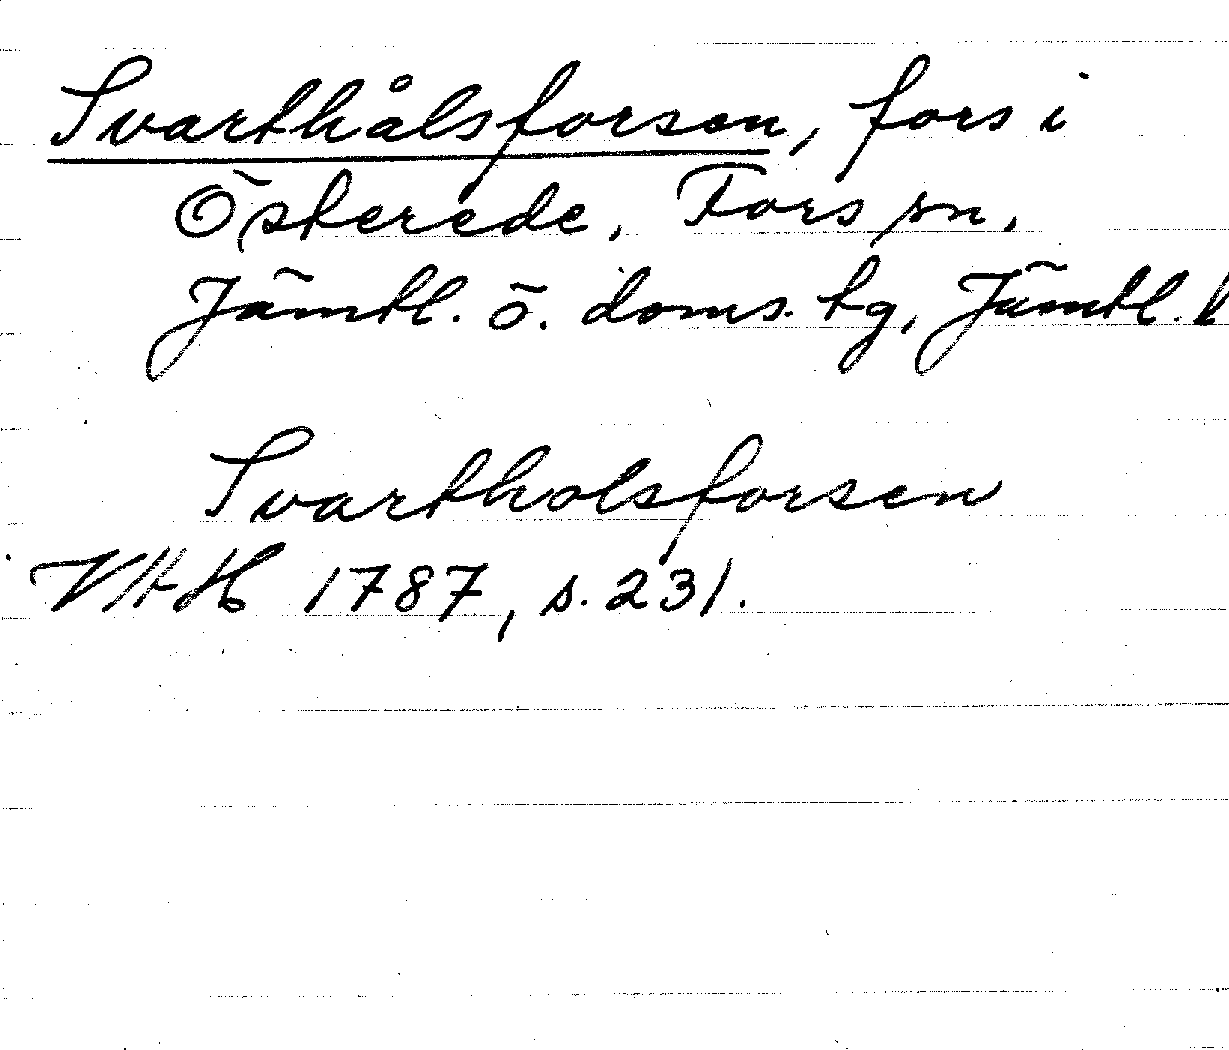 Svarthålsforsen, fors i
Österede, Fors sn,
Jämtl. ö. doms. tg, Jämtl. l
Svartholsforsen
VHAH 1787, s. 231.